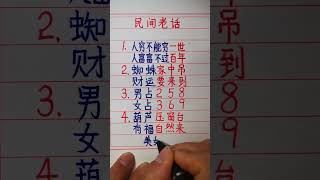 民间老话
1.人穷不能穷一世
人富富不过百年
2.蜘蛛家中吊
财运要来到
3.男占258
女占369
4.葫芦压窗台
有福自然来